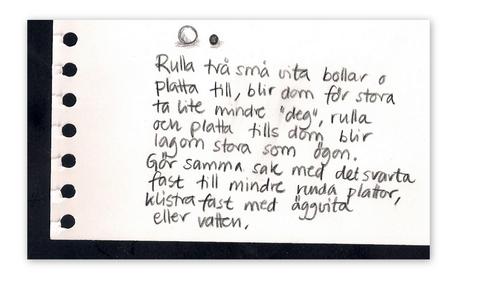 Rulla två små vita bollar o
platta till, blir dom för stora
ta lite mindre "deg", rulla
och platta tills dom blir
lagom stora som ögon.
Gör samma sak med det svarta
fast till mindre runda plattor,
klistra fast med äggvita
eller vatten.